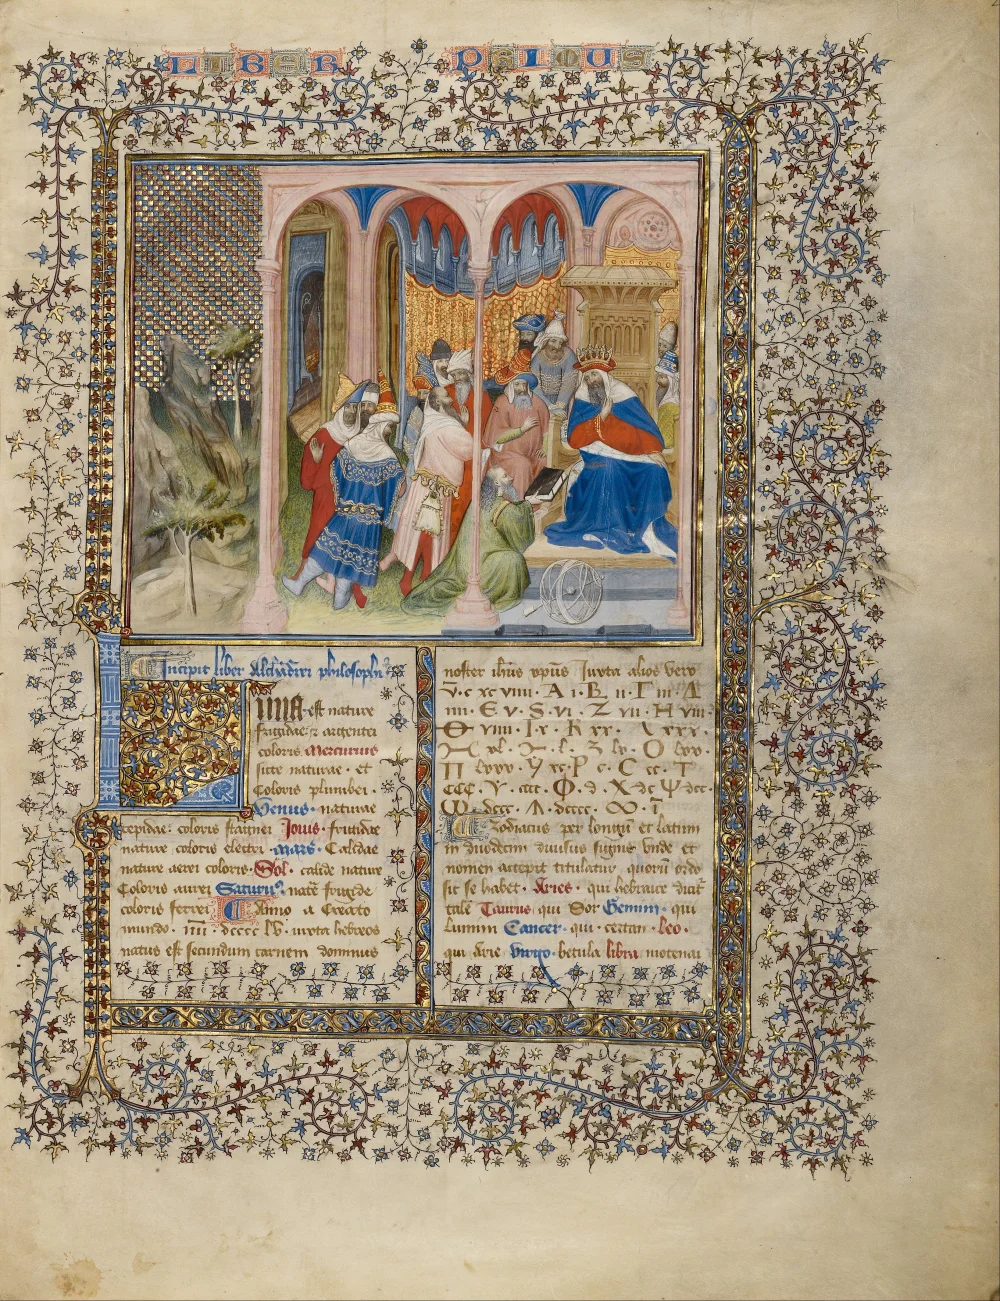 LIBER PRIMUS
Incipit liber Alchandiri philosophi
Luna est nature
frigidae et argentei
coloris Mercurius
naturae · et
Coloris plumbei ·
Venus · naturae
tepidae · coloris stagnei Jovis · frigidae
nature coloris electri · Mars · Calidae
nature aerei coloris · Sol · calide nature
Coloris aurei Saturnus nature frigide
coloris ferrei Anno a Creato
mundo · iiii · dcccc lv · iuxta hebreos
natus est secundum carnem dominus
noster ihus xpus Iuxta alios vero
v · c xc viiii · A i · B ii · Γ iii · Δ
iiii · E v · S · vi · Z vii · H viii ·
Θ viiii · I x · K xx · Λ xxx ·
xl · l · lx · O lxx ·
Π lxxx · xc · P c · C cc · T
ccc · Y · cccc · Φ · d · X dc Ψ dcc ·
Ω · dccc · dcccc · ∞ · i
Zodiacus per longum et latum
in duodecim divisus signis unde et
nomen accepit titulatur quorum ordo
sic se habet · Aries · qui hebraice dicitur
tale Taurus qui Sor Gemini · qui
Cancer · qui · Leo ·
qui Arie Virgo · betula libra